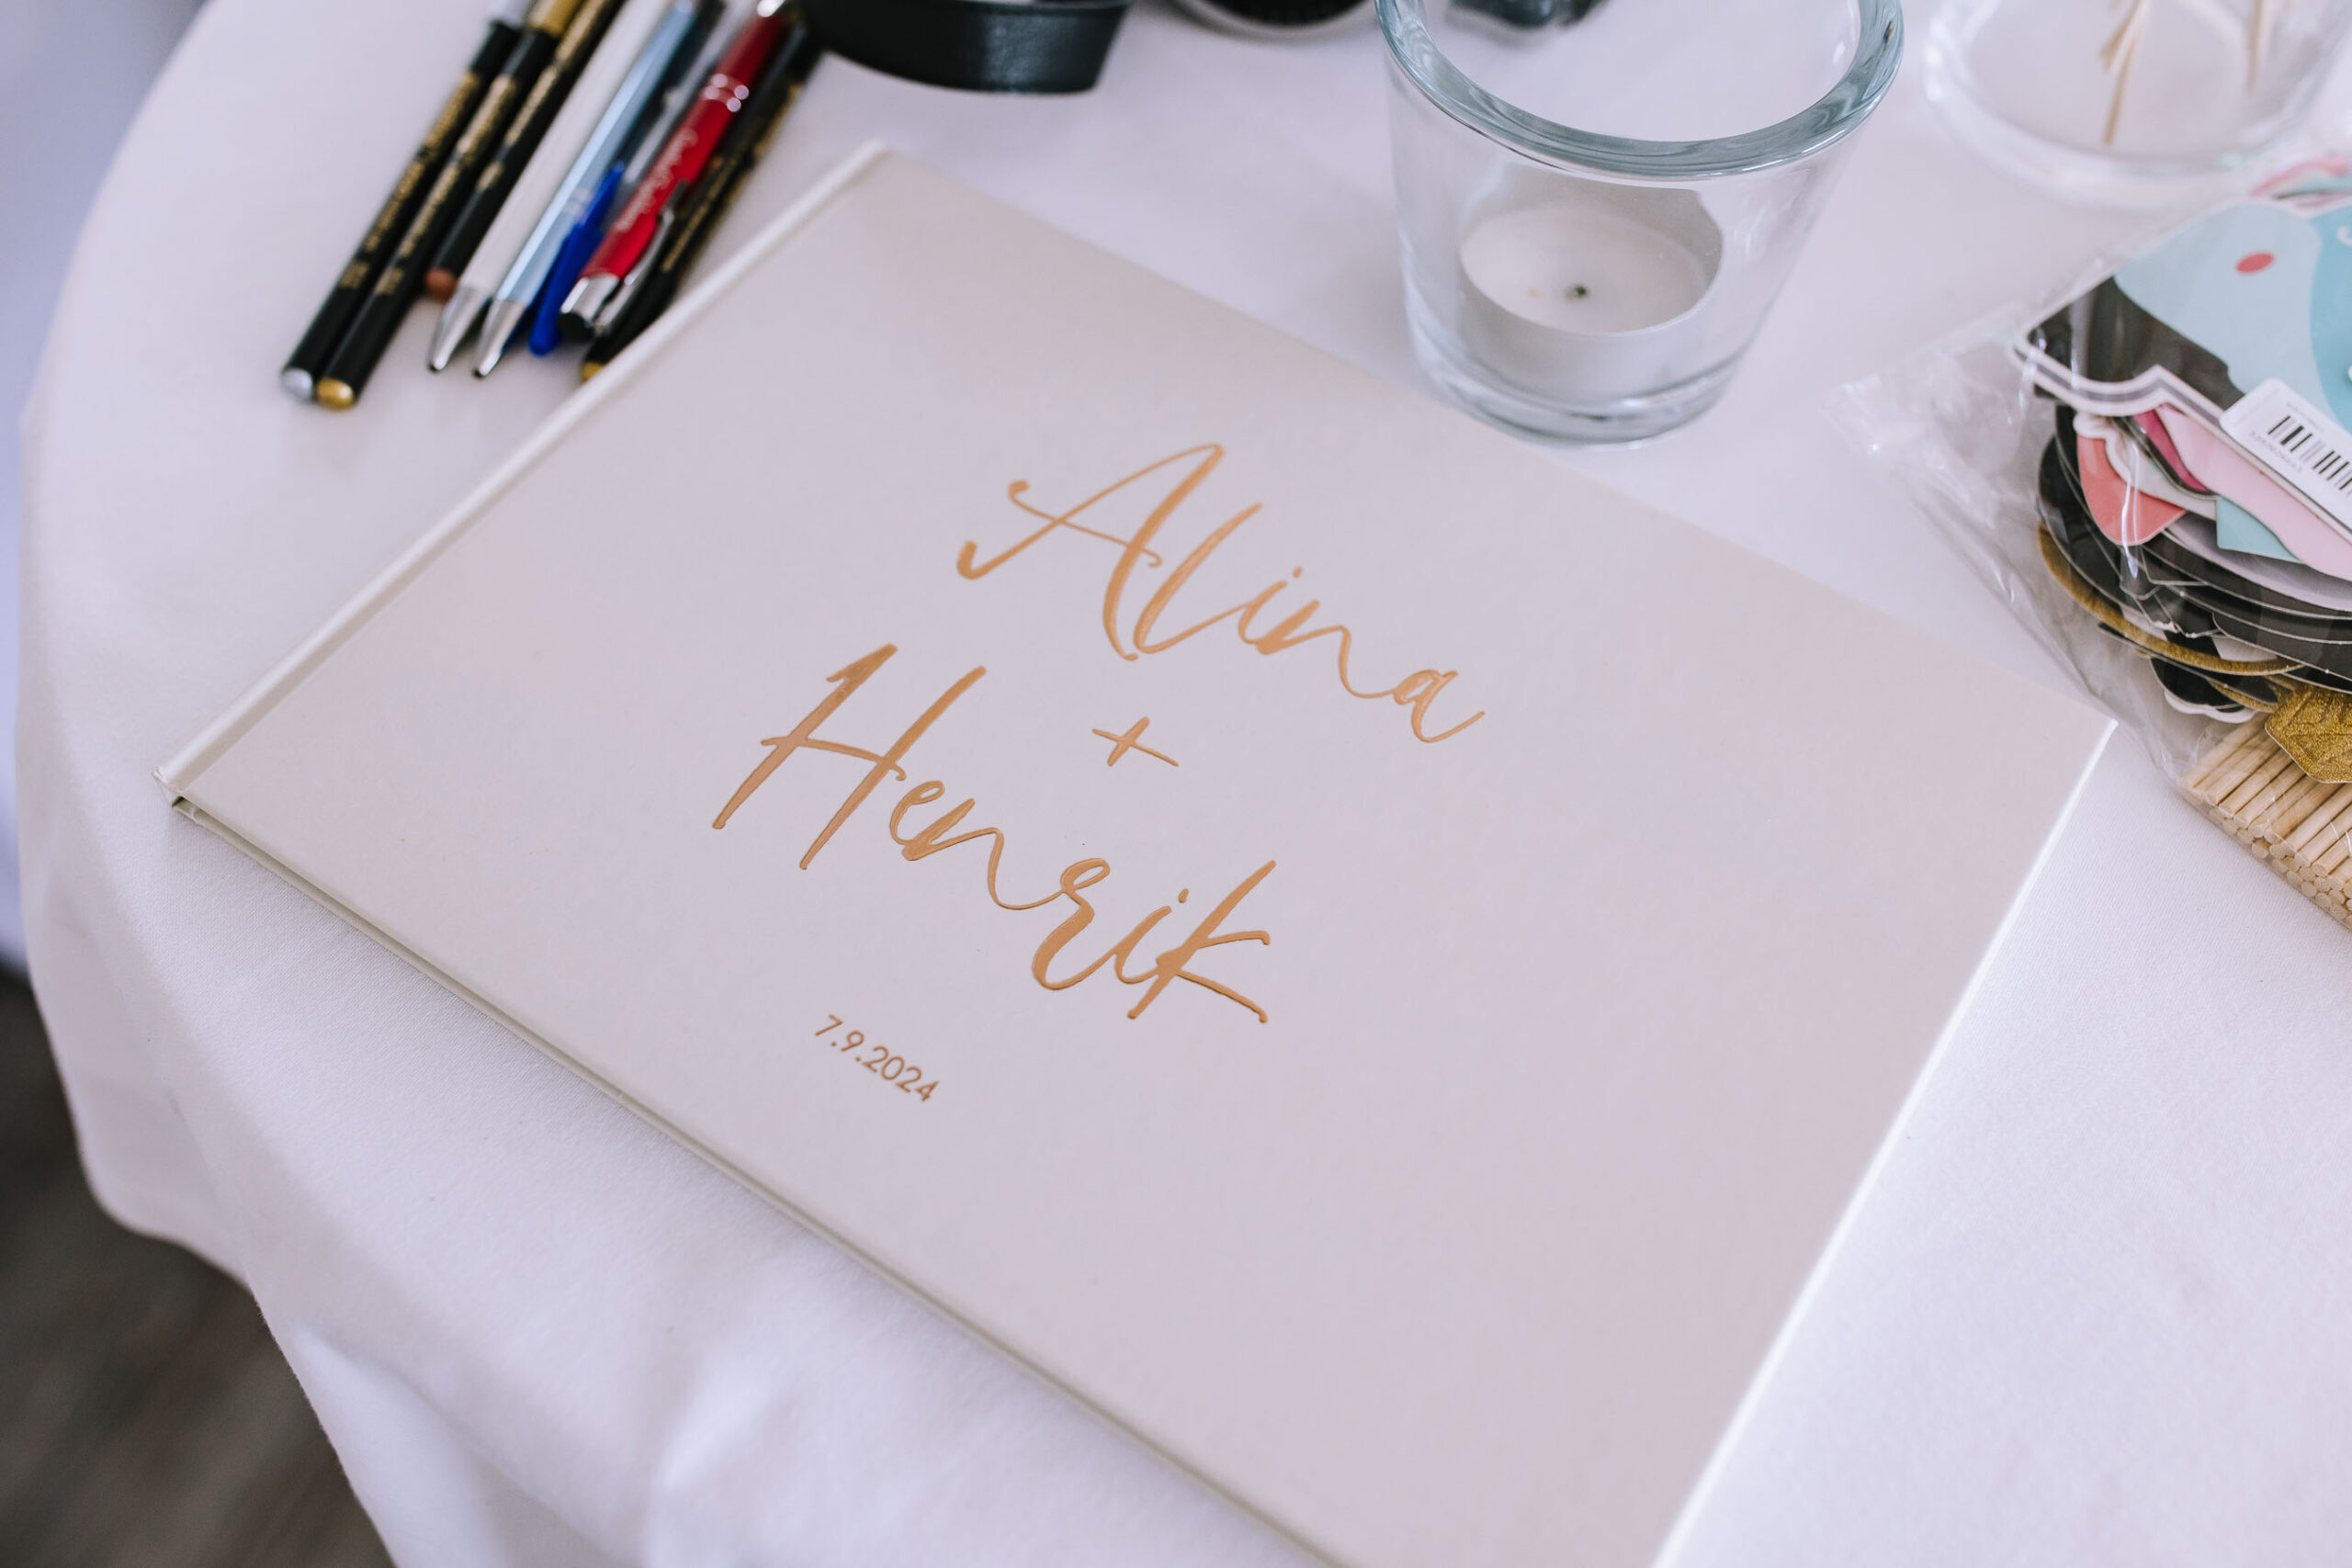 Alina
+
Henrik
7.9.2024